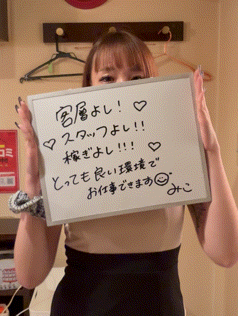 客層よし！♡
♡スタッフよし!!
稼ぎよし!!! ♡
とっても良い環境で
お仕事できます☺
みこ
コミ